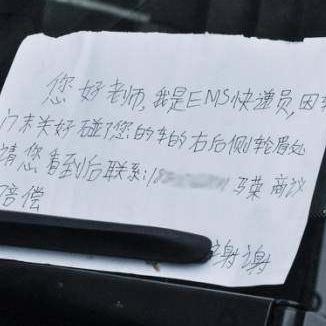 您好老师,我是EMS快递员,因
门未关好碰了您的车的右后侧轮眉处
请您看到后联系:1 马荣 商议
赔偿
谢谢